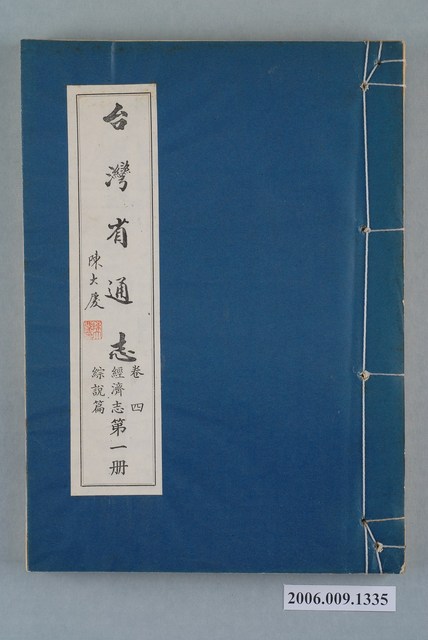 台灣省通志
陳大慶
卷四
經濟志
綜說篇
第一册
2006.009.1335